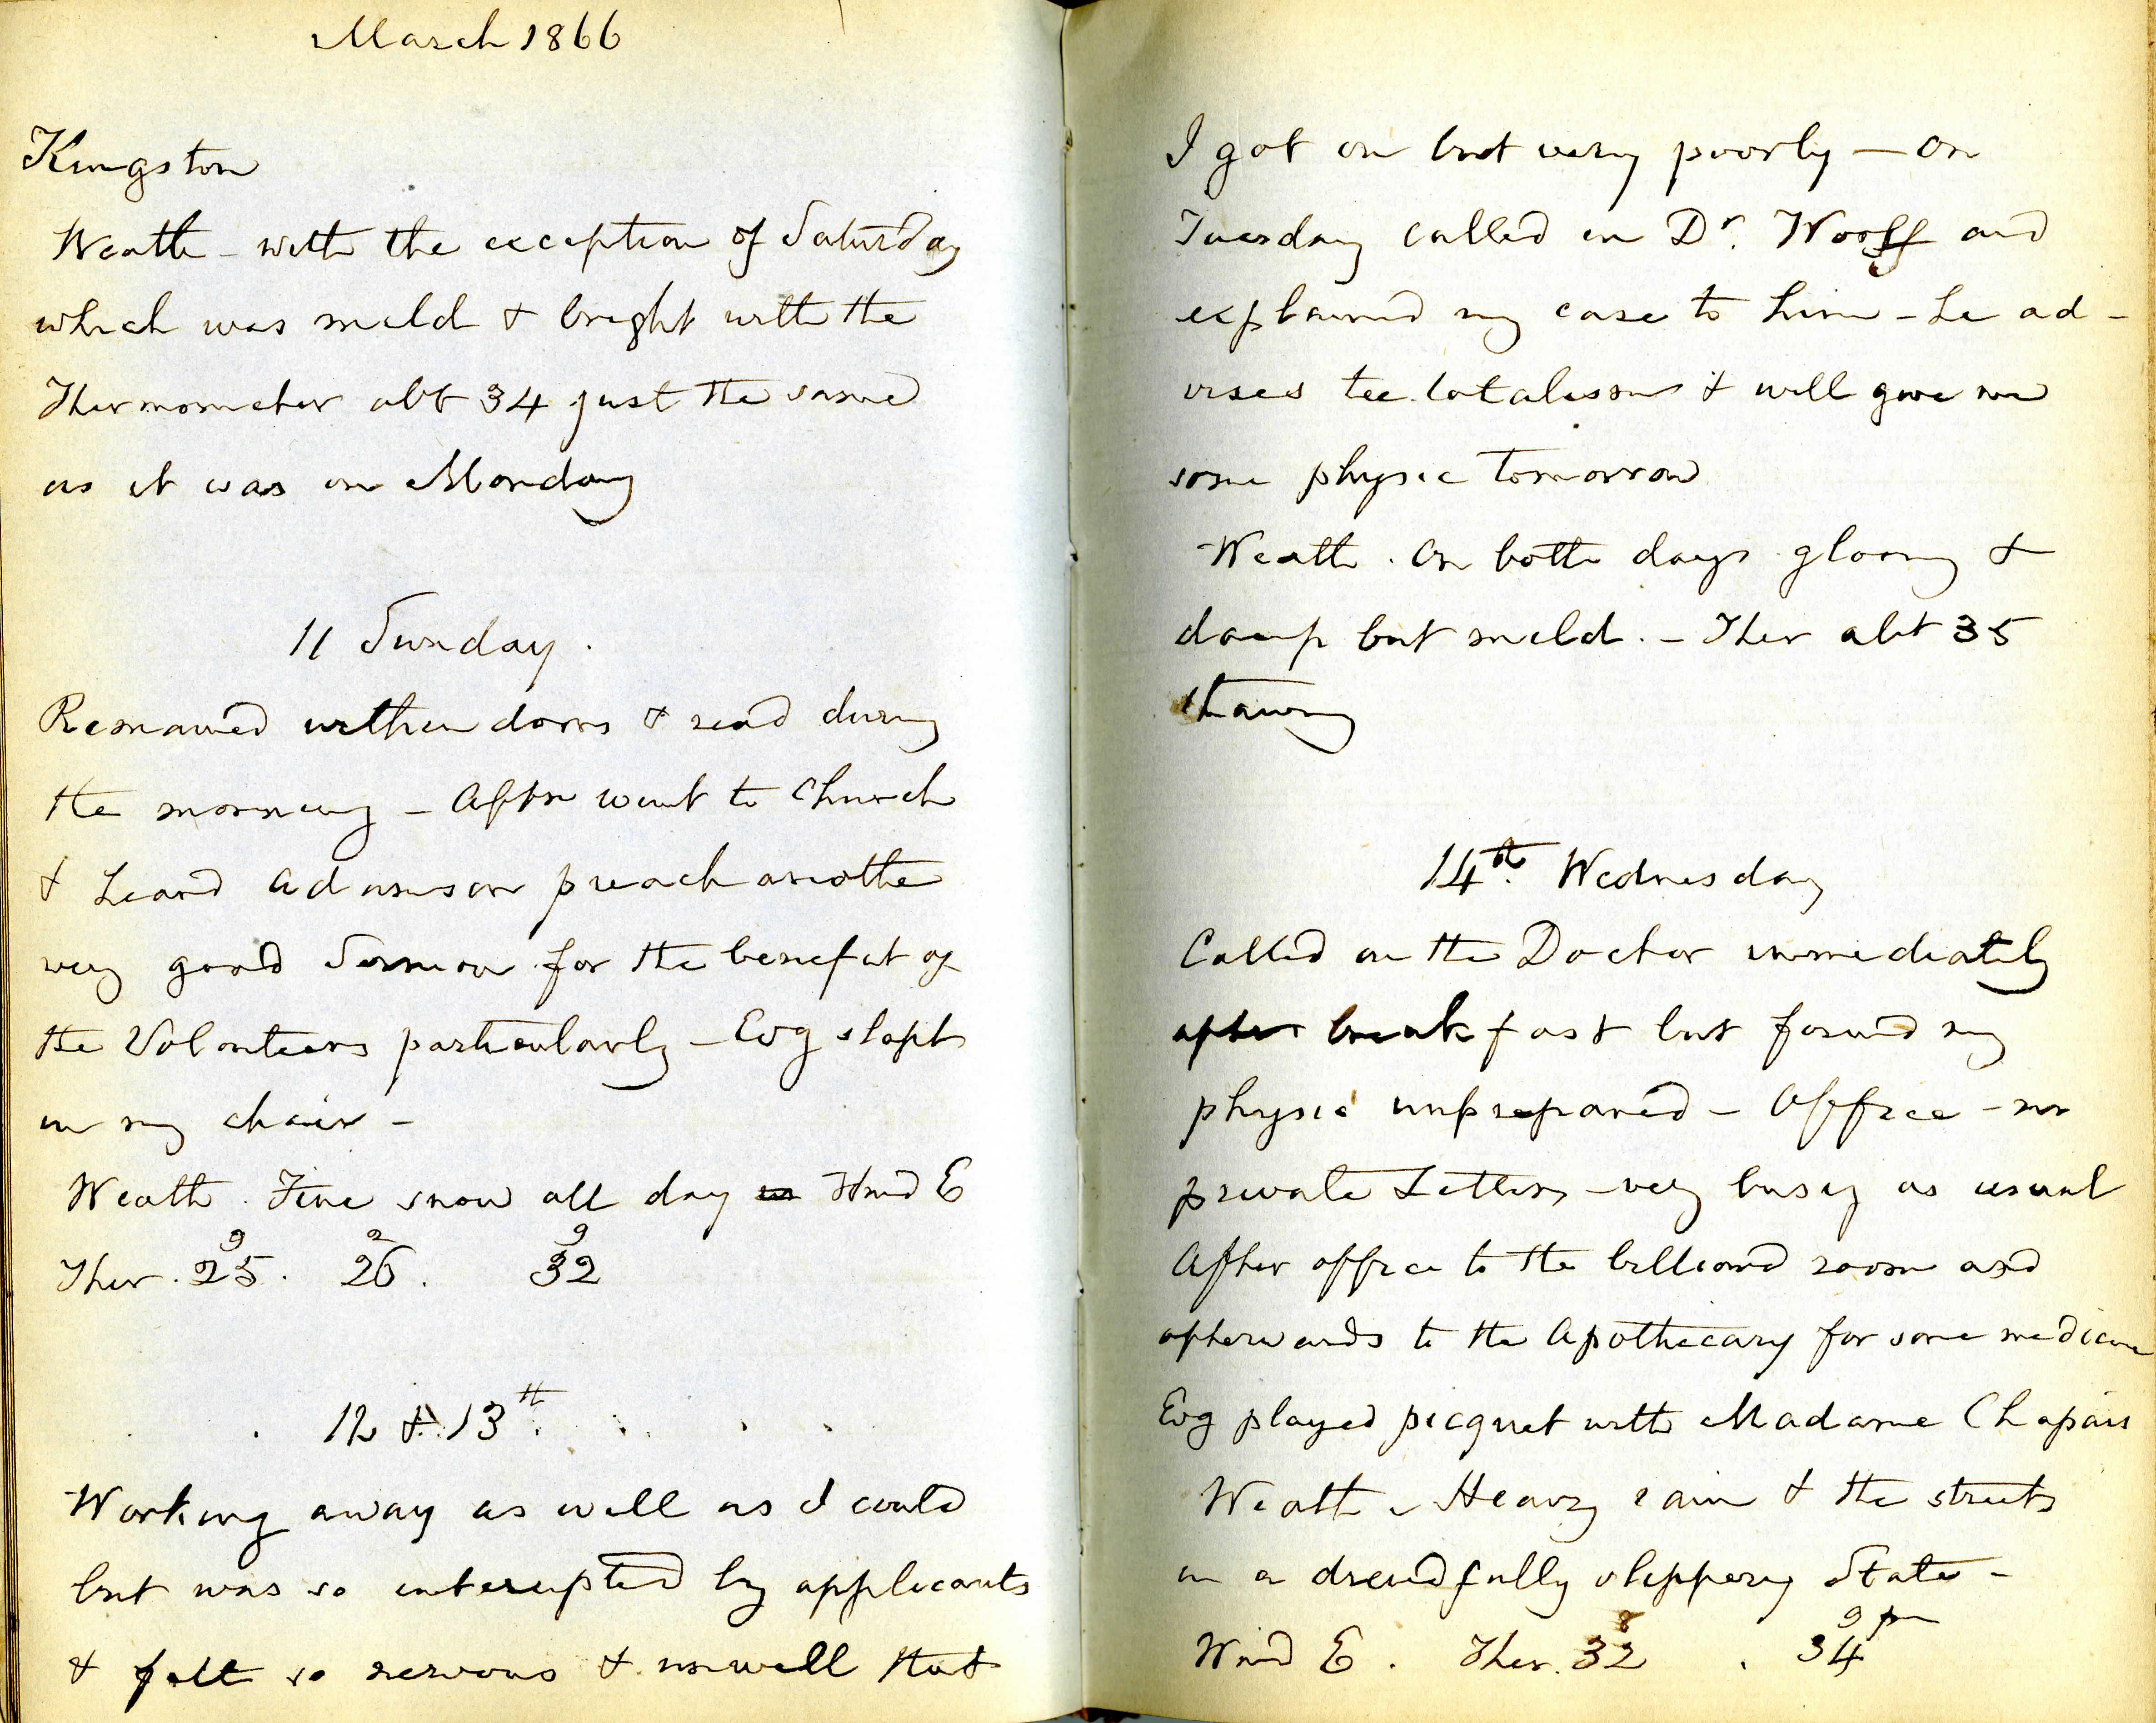 March 1866
Kingston
Weath - with the exception of Saturday
which was mild & bright with the
Thermometer abt 34 just the same
as it was on Monday
11 Sunday.
Remained within doors & read during
the morning - Aftn went to Church
& heard Adamson preach another
very good Sermon for the benefit of
the Volunteers particularly - Evg slept
in my chair -
Weath. Fine snow all day Wind E
9 2 9
Ther. 25. 26. 32
12 & 13th
Working away as well as I could
but was so interupted by applicants
& felt so nervous & unwell that
I got on but very poorly - On
Tuesday called in Dr. Wolff and
explained my case to him - he ad-
vises tee totalism & will give me
some physic tomorrow
Weath. On both days gloomy &
damp but mild. - Ther abt 35
thawing
14th. Wednesday
Called on the Doctor immediately
after breakfast but found my
physic unprepared - Office - no
private Letters - very busy as usual
After office to the billiard room and
afterwards to the Apothecary for some medicine
Evg played picquet with Madame Chapais
Weath - Heavy rain & the streets
in a dreadfully slippery State -
8 9 pm
Wind E. Ther. 32 . 34